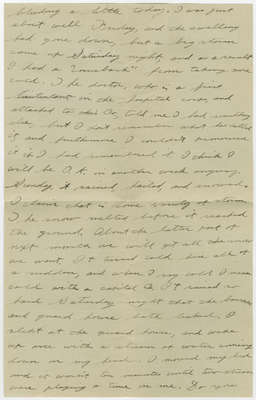 bleeding a little today. I was just
about well Friday, and the swelling
had gone down, but a big storm
came up Saturday night, and as a result
I had a "comeback" from taking more
cold. The doctor, who is a first
lieutenant in the hospital corps and
attached to this Co, told me I had something
else but I don't remember what he called
it and furthermore I couldn't pronounce
it if I had remembered it. I think I
will be O.K. in another week anyway.
Sunday it rained, hailed, and snowed.
I claim that is some variety of storm.
The snow melted before it reached
the ground. About the latter part of
next month we will get all the snow
we want. It turned cold here all of
a sudden, and when I say cold I mean
cold with a capital C. It rained so
hard Saturday night that the houses
and guard house both leaked. I
slept at the guard house, and woke
up once with a stream of water coming
down on my head. I moved my bed
and it wasn't ten minutes until two streams
were playing a tune on me. Do you